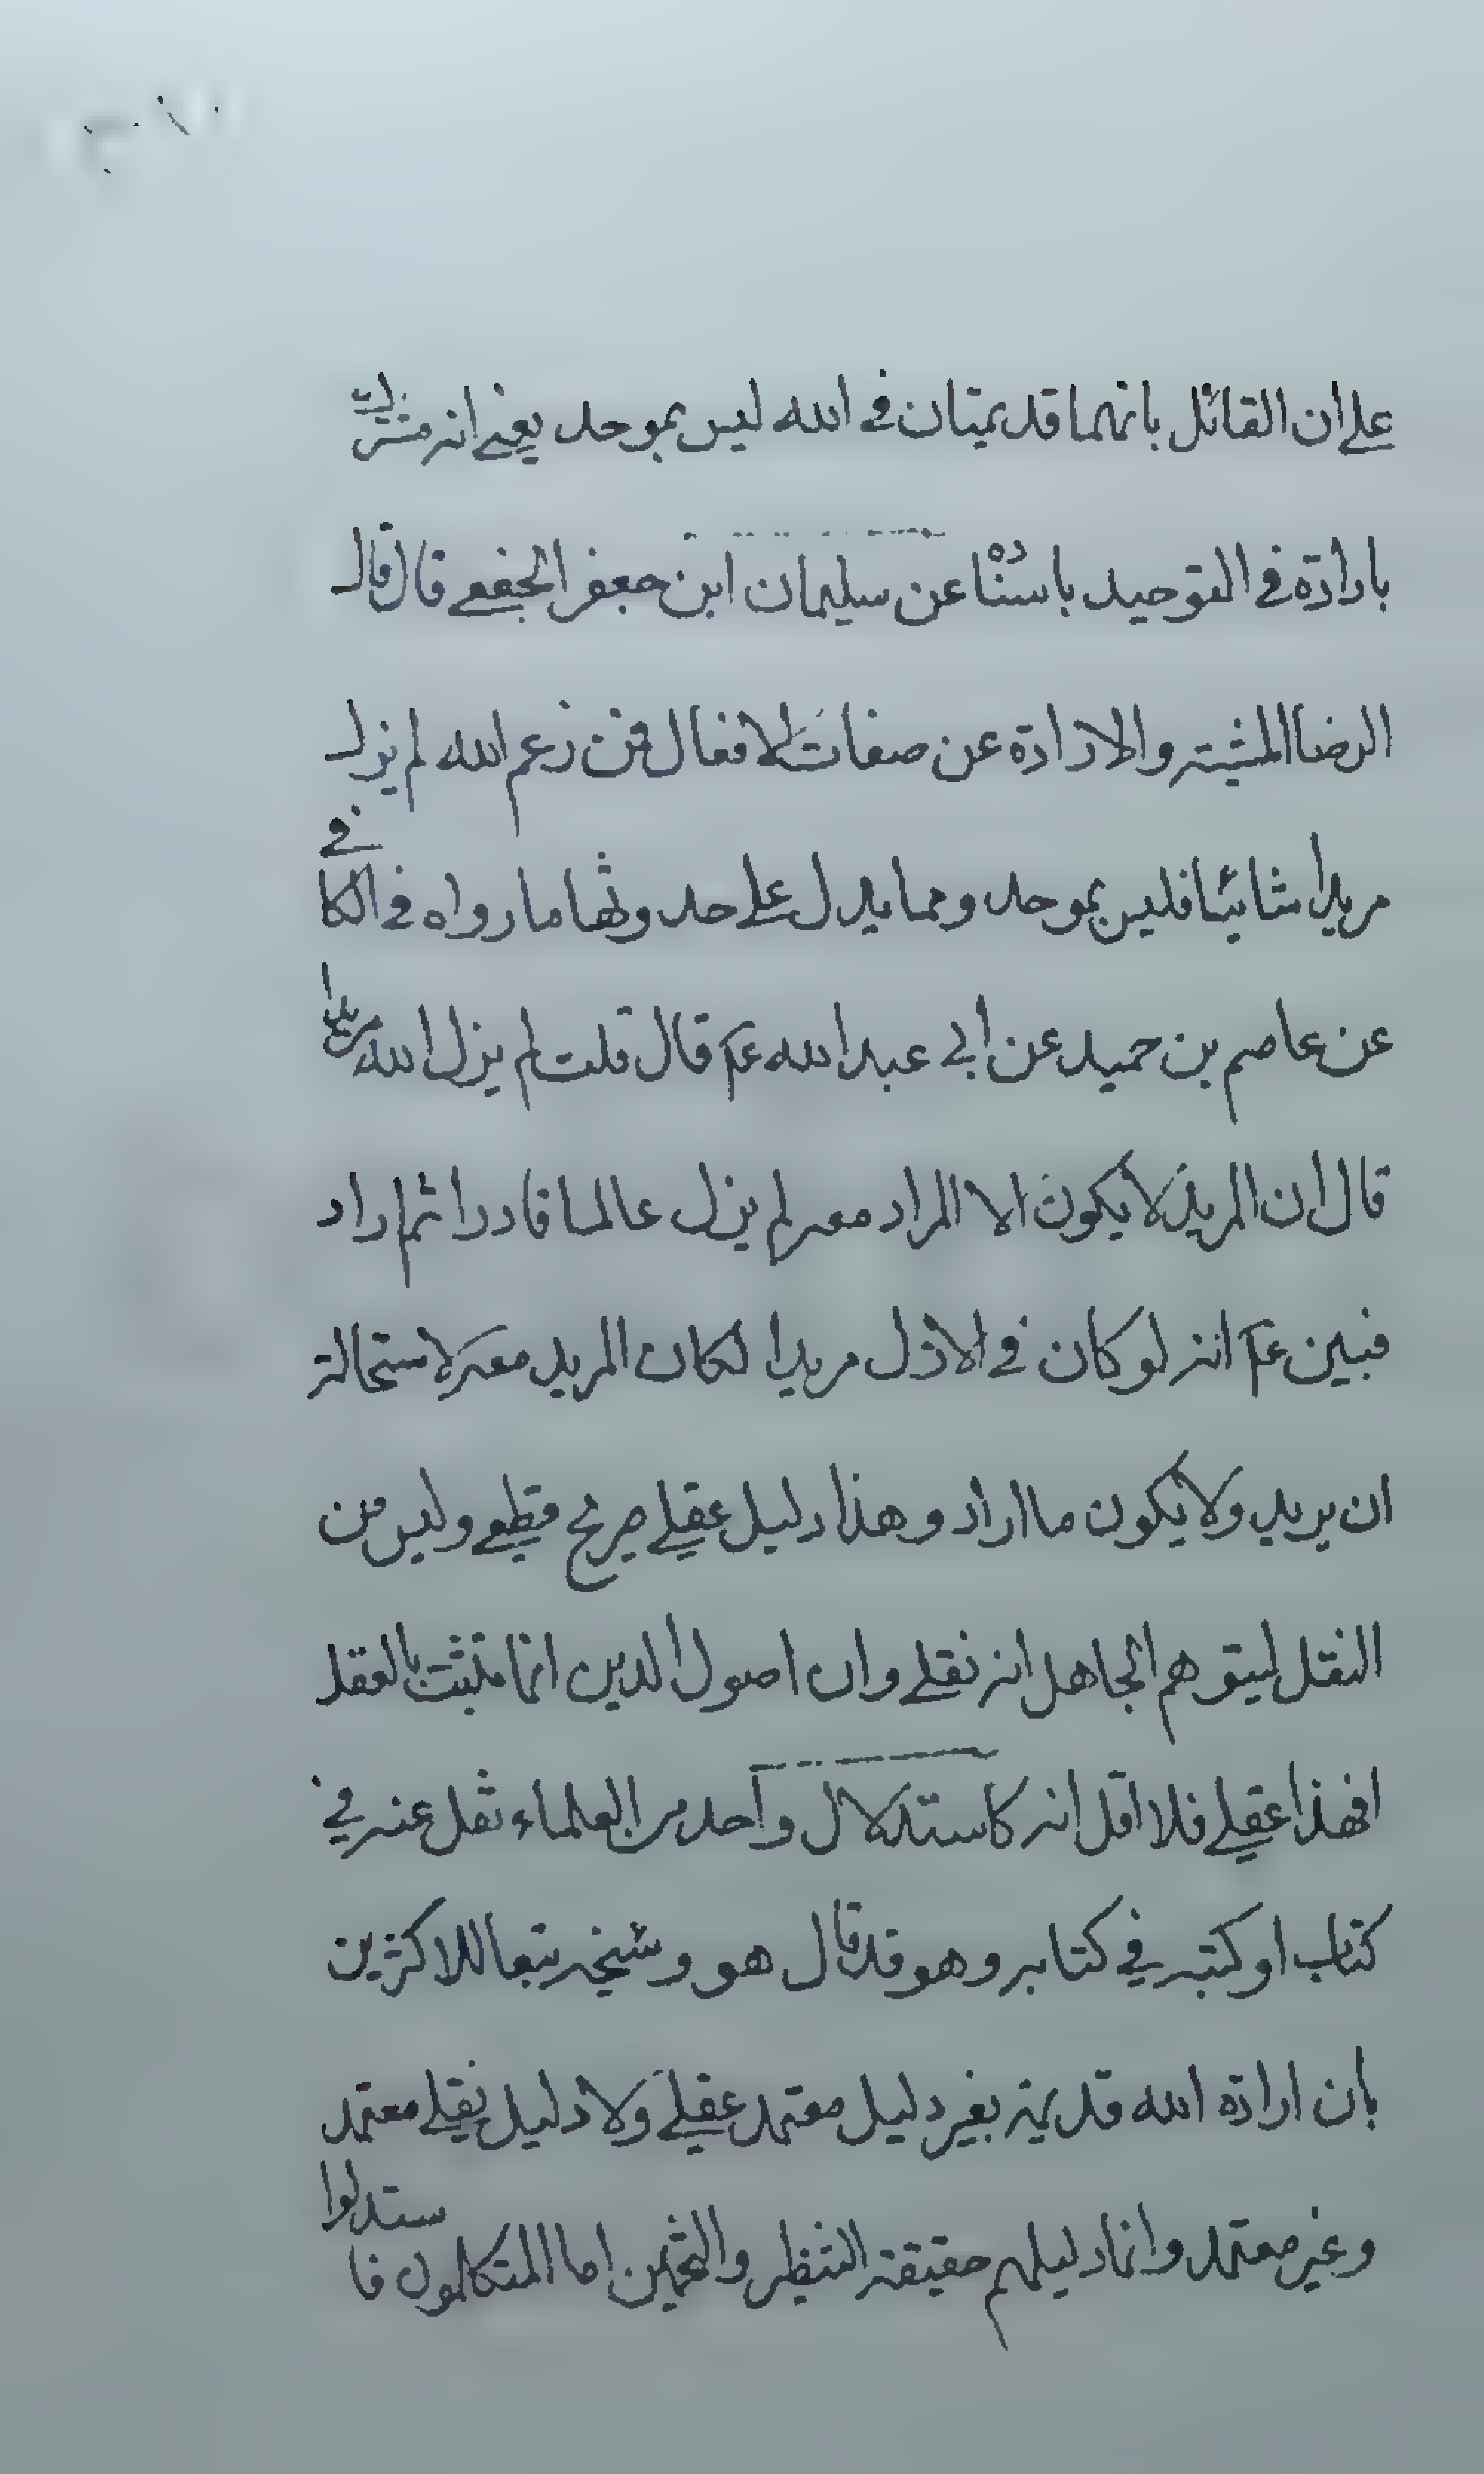 على ان القائل بانهما قديمتان في الله ليس بموحد يعني انه مشرك
بارادة في التوحيد باسناده عن سليمان ابن جعفر الجفعي قال قال
الرضا المشيته والارادة عن صفات الافعال فمن زعم الله لم يزل
مريدا شائيا فليس بموحد ومما يدل على حدوثها ما رواه في الكافي
عن عاصم بن حميد عن ابي عبد الله عم قال قلت لم يزل الله مريدا
قال ان المريد لا يكون الا المراد معه لم يزل عالما قادرا ثم اراد
فبين عم انه لو كان في الازل مريدا لكان المريد معه لاستحالة
ان يريد ولا يكون ما اراد وهذا دليل عقلي صريح قطعي وليس من
النقل ليتوهم الجاهل انه نقلي وان اصول الدين انما تثبت بالعقل
افهذا عقلي فلا اقل انه كاستدلال واحد من العلماء نقل عنه في
كتاب او كتبه في كتابه وهو قد قال هو وشيخه تبعا للاكثرين
بان ارادة الله قديمة بغير دليل معتمد عقلي ولا دليل نقلي معتمد
وغير معتمد وانما دليلهم حقيقة التنظير والتخمين اما المتكلمون فاستدلوا